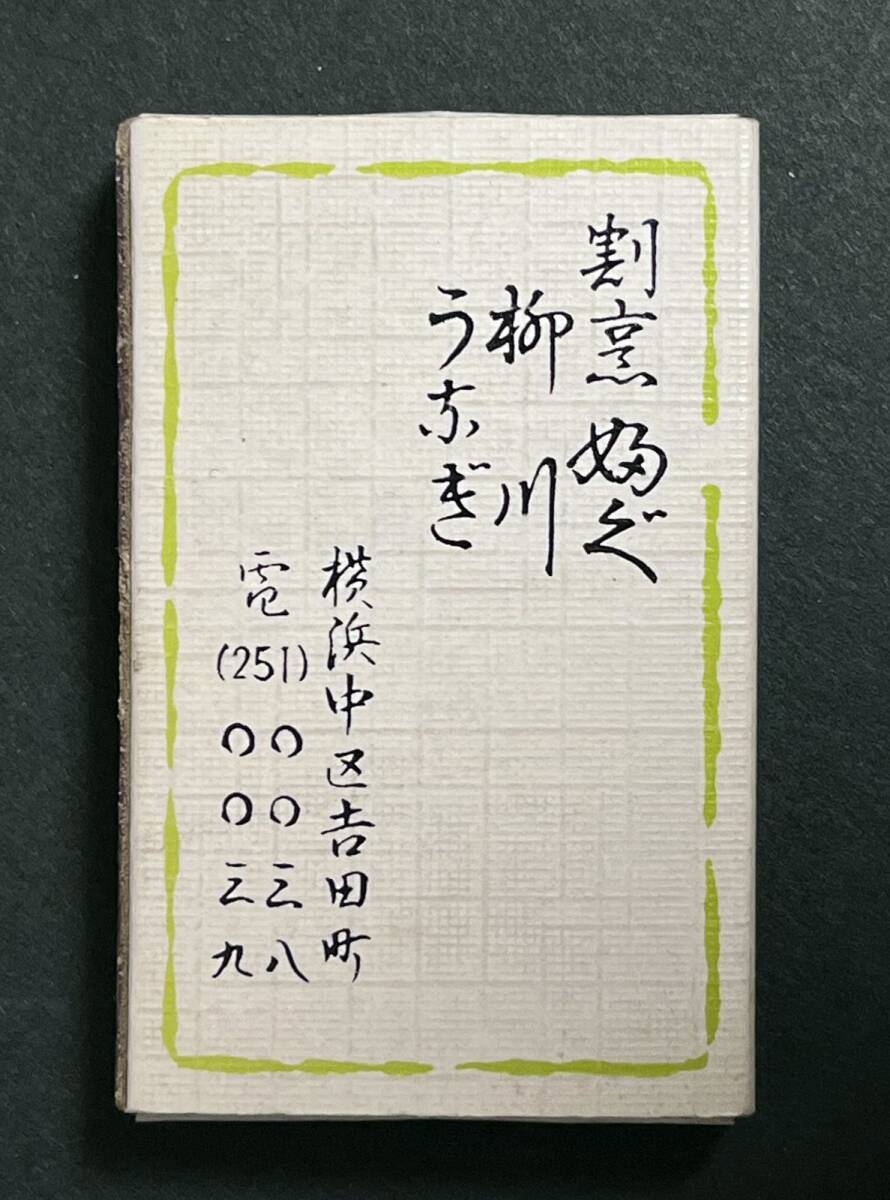 割烹 婦ぐ
柳川
うなぎ
横浜中区吉田町
電(251)
〇〇三八
〇〇三九